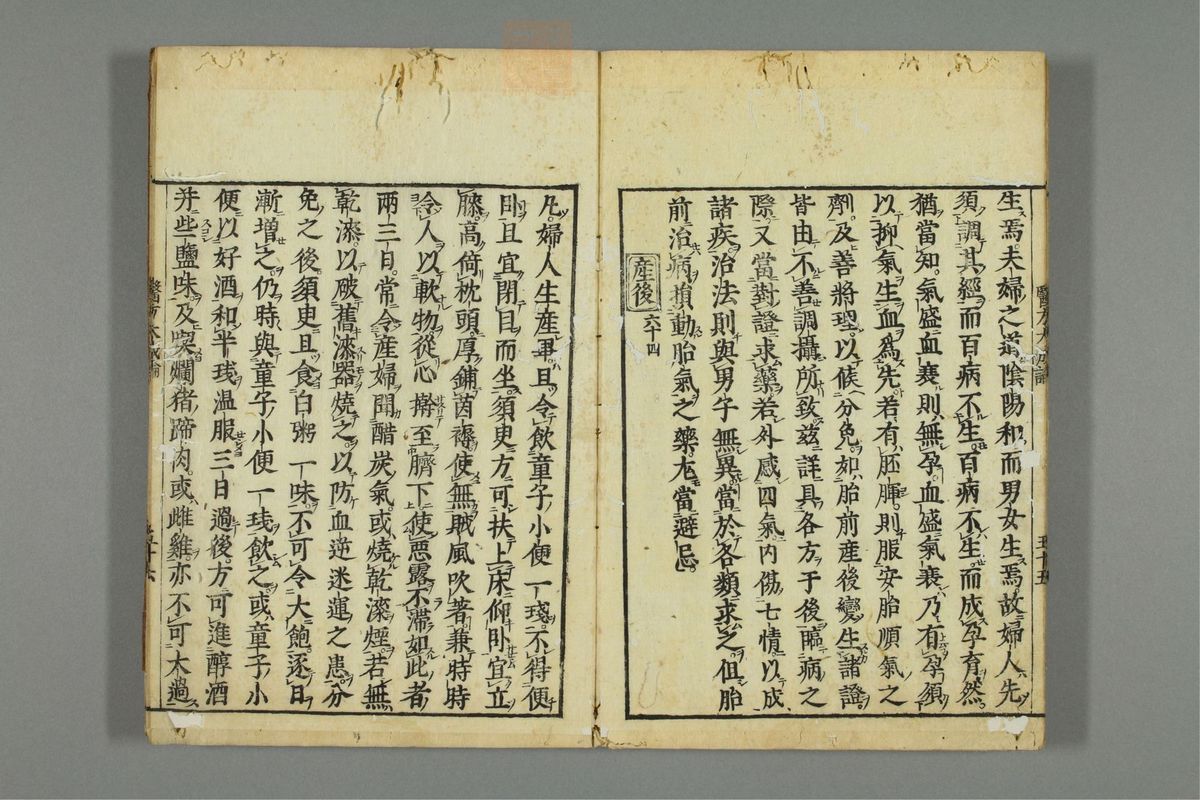 生焉夫婦之道陰陽和而男女生焉故婦人先
須調其經而百病不生百病不生而成孕育然
猶當知氣盛血衰則無孕血盛氣衰乃有孕須
以抑氣生血為先若有胚腪則服安胎順氣之
劑及善將理以候分免如胎前產後變生諸證
皆由不善調攝所致玆詳具各方于後臨病之
際又當對證求藥若外感四氣內傷七情以成
諸疾治法則與男子無異當於各類求之但胎
前治病損動胎氣之藥尤當避忌
產後 六十四
凡婦人生產畢且令飲童子小便一琖不得便
臥且宜閉目而坐須臾方可扶上床仰臥宜立
膝高倚枕頭厚鋪茵褥使無賊風吹著兼時時
令人以軟物從心擀至臍下使惡露不滯如此者
兩三日常令產婦聞醋炭氣或燒乾漆煙若無
乾漆以破舊漆器燒之以防血逆迷運之患分
免之後須臾且食白粥一味不可令大飽逐日
漸增之仍時與童子小便一琖飲之或童子小
便以好酒和半琖溫服三日過後方可進醇酒
并些鹽味及喫爛猪蹄肉或雌雞亦不可太過